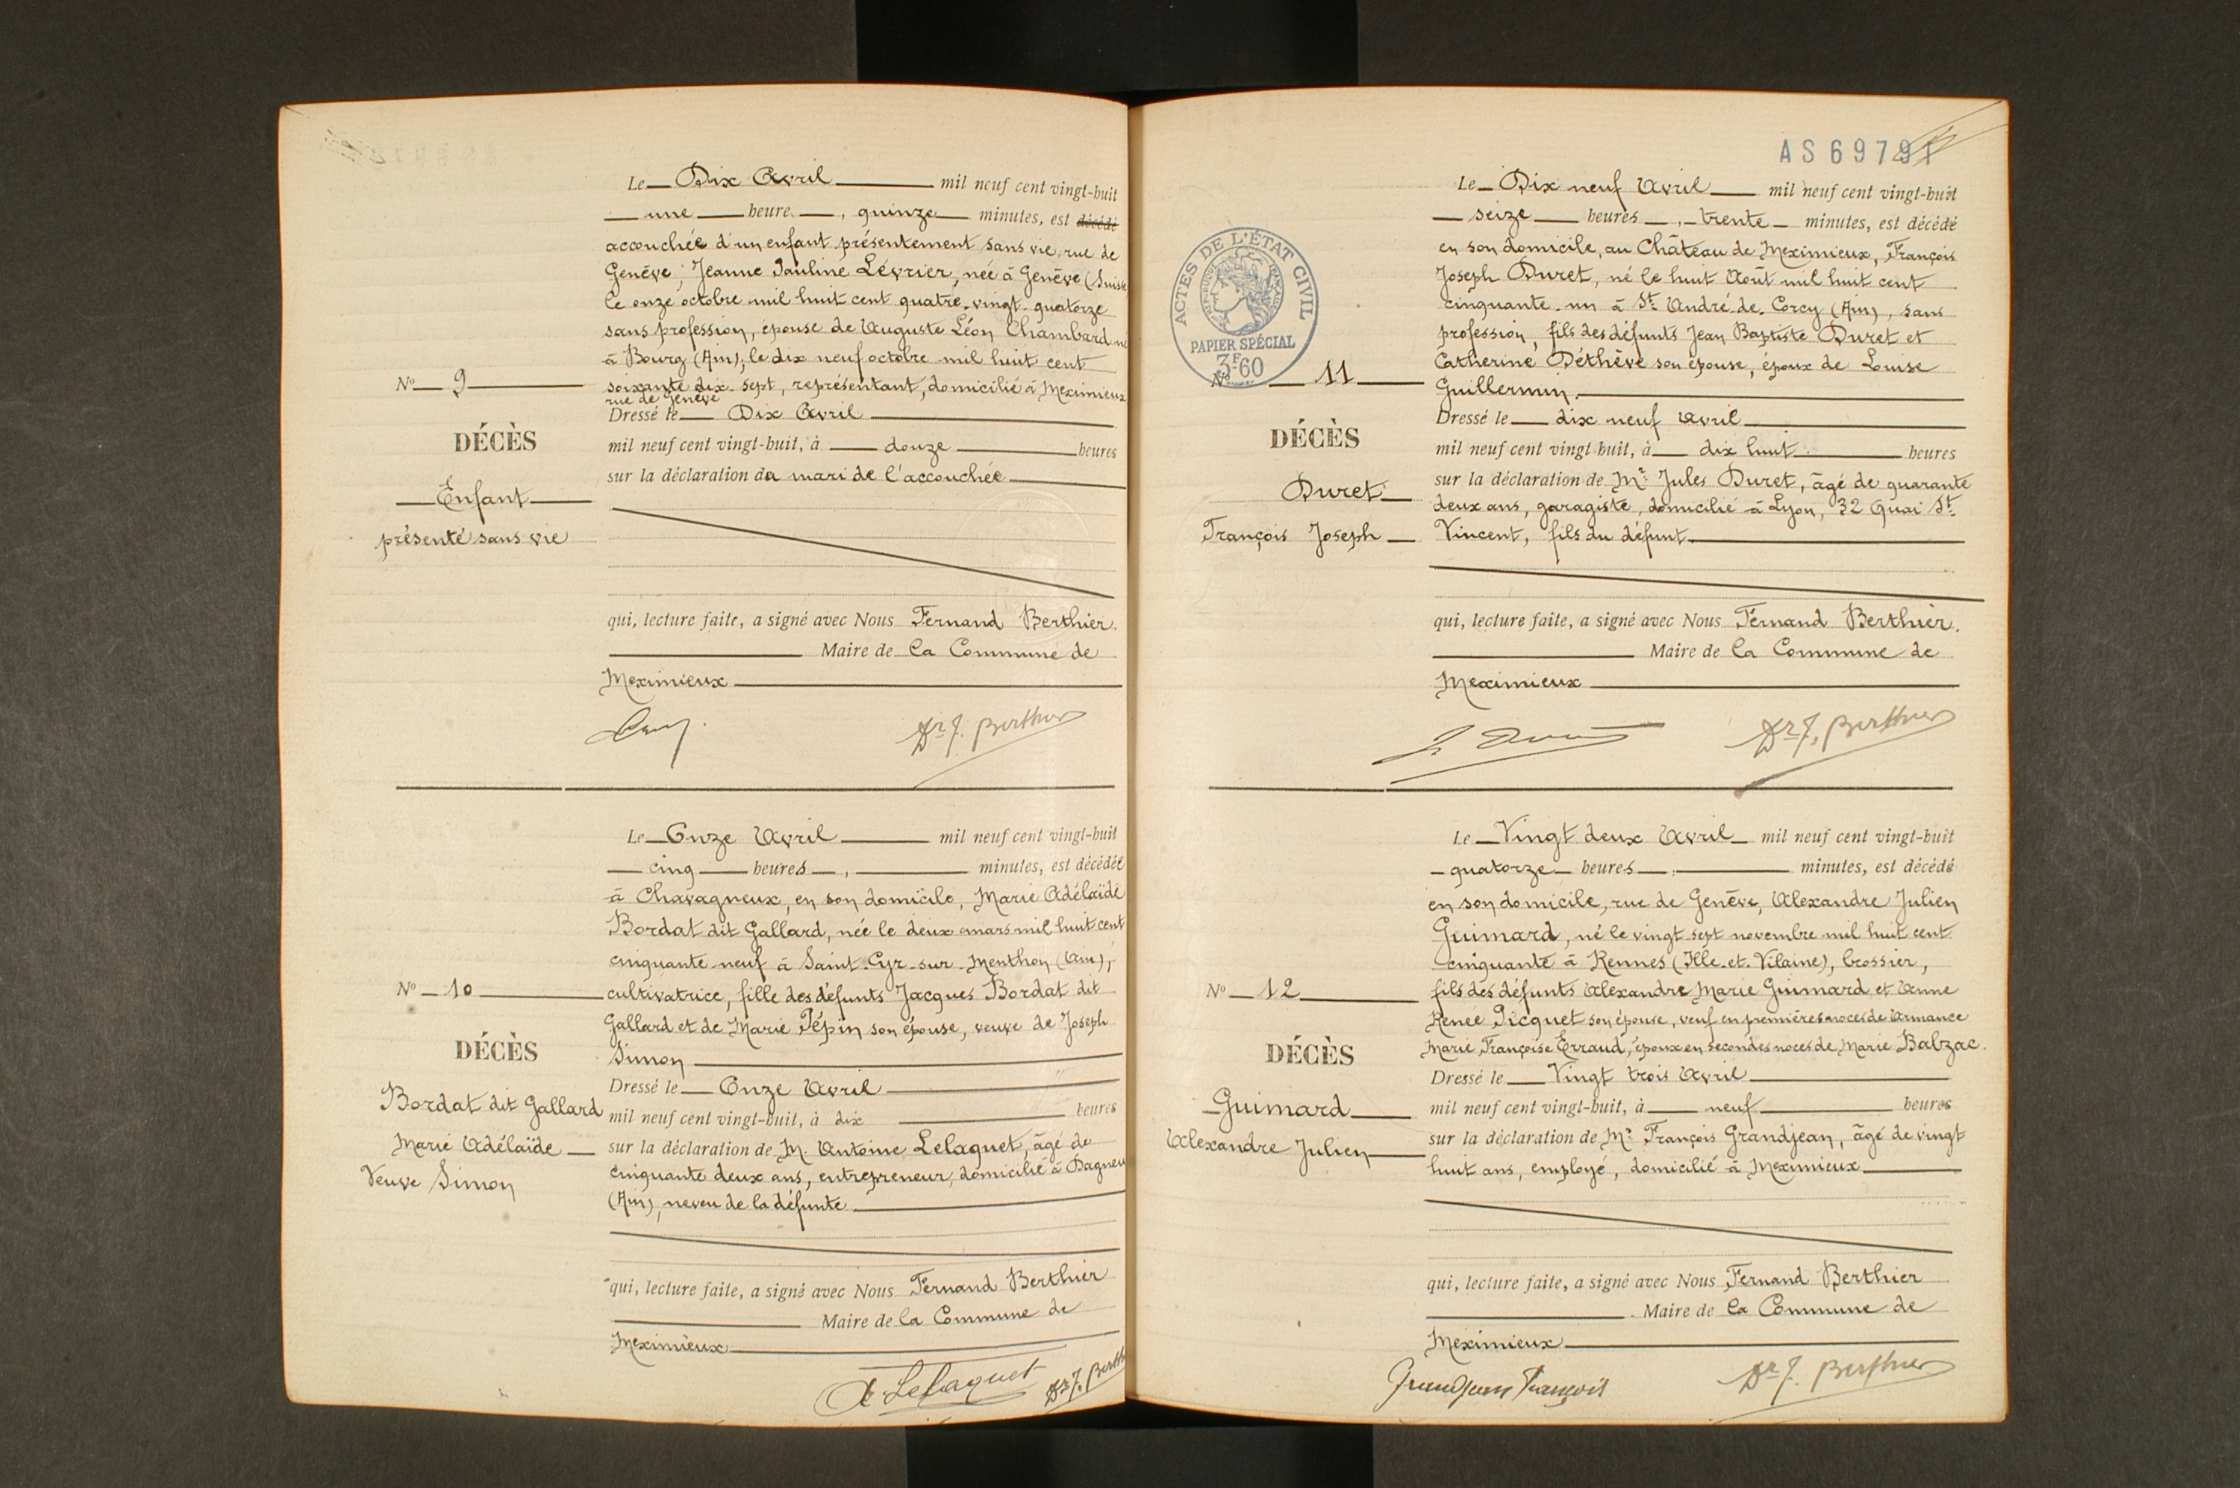 Le Dix Avril mil neuf cent vingt-huit
une heure, quinze minutes, est décédé
accouchée d'un enfant présentement sans vie, rue de
Genève, Jeanne Pauline Lévrier, née à Genève (Suisse
le onze octobre mil huit cent quatre-vingt-quatorze
sans profession, épouse de Auguste Léon Chambard né
à Bourg (Ain), le dix neuf octobre mil huit cent
soixante dix-sept, représentant, domicilié à Meximieux
rue de Genève
N° 9
Dressé le Dix Avril
DÉCÈS
mil neuf cent vingt-huit, à douze heures
sur la déclaration du mari de l'accouchée
Enfant
présenté sans vie
qui, lecture faite, a signé avec Nous Fernand Berthier.
Maire de la Commune de
Meximieux
Dr F. Berthier
Le Onze Avril mil neuf cent vingt-huit
cinq heures, minutes, est décédée
à Chavagneux, en son domicile, Marie Adélaïde
Bordat dit Gallard, née le deux mars mil huit cent
cinquante-neuf à Saint-Cyr-sur-Menthon (Ain),
N° 10
cultivatrice, fille des défunts Jacques Bordat dit
Gallard et de Marie Pépin son épouse, veuve de Joseph
DÉCÈS
Simon
Dressé le Onze Avril
Bordat dit Gallard
mil neuf cent vingt-huit, à dix heures
Marie Adélaïde
sur la déclaration de M. Antoine Lelaquet, âgé de
Veuve Simon
cinquante deux ans, entrepreneur, domicilié à Dagneu
(Ain), neveu de la défunte
qui, lecture faite, a signé avec Nous Fernand Berthier
Maire de la Commune de
Meximieux
A. Lelaquet Dr F. Berth
AS69791
Le Dix neuf Avril mil neuf cent vingt-huit
seize heures, trente minutes, est décédé
en son domicile, au Château de Meximieux, François
Joseph Duret, né le huit Août mil huit cent
cinquante-un à St André-de-Corcy (Ain), sans
profession, fils des défunts Jean Baptiste Duret et
Catherine Déthève son épouse, époux de Louise
Guillermin.
ACTES DE L'ÉTAT CIVIL
PAPIER SPÉCIAL
3F60
N° 11
Dressé le dix neuf avril
DÉCÈS
mil neuf cent vingt huit, à dix huit heures
sur la déclaration de Mr Jules Duret, âgé de quarante
Duret
deux ans, garagiste, domicilié à Lyon, 32 Quai St
François Joseph
Vincent, fils du défunt
qui, lecture faite, a signé avec Nous Fernand Berthier.
Maire de la Commune de
Meximieux
Dr F. Berthier
Le Vingt deux Avril mil neuf cent vingt-huit
quatorze heures, minutes, est décédé
en son domicile, rue de Genève, Alexandre Julien
Guimard, né le vingt sept novembre mil huit cent
cinquante à Rennes (Ille-et-Vilaine), brossier,
N° 12
fils des défunts Alexandre Marie Guimard et Anne
Renée Picquet son épouse, veuf en premières noces de Armance
Marie Françoise Erraud, époux en secondes noces de Marie Balzac.
DÉCÈS
Dressé le Vingt trois Avril
Guimard
mil neuf cent vingt-huit, à neuf heures
Alexandre Julien
sur la déclaration de Mr François Grandjean, âgé de vingt
huit ans, employé, domicilié à Meximieux
qui, lecture faite, a signé avec Nous Fernand Berthier
Maire de la Commune de
Meximieux
Grandjean François Dr F. Berthier